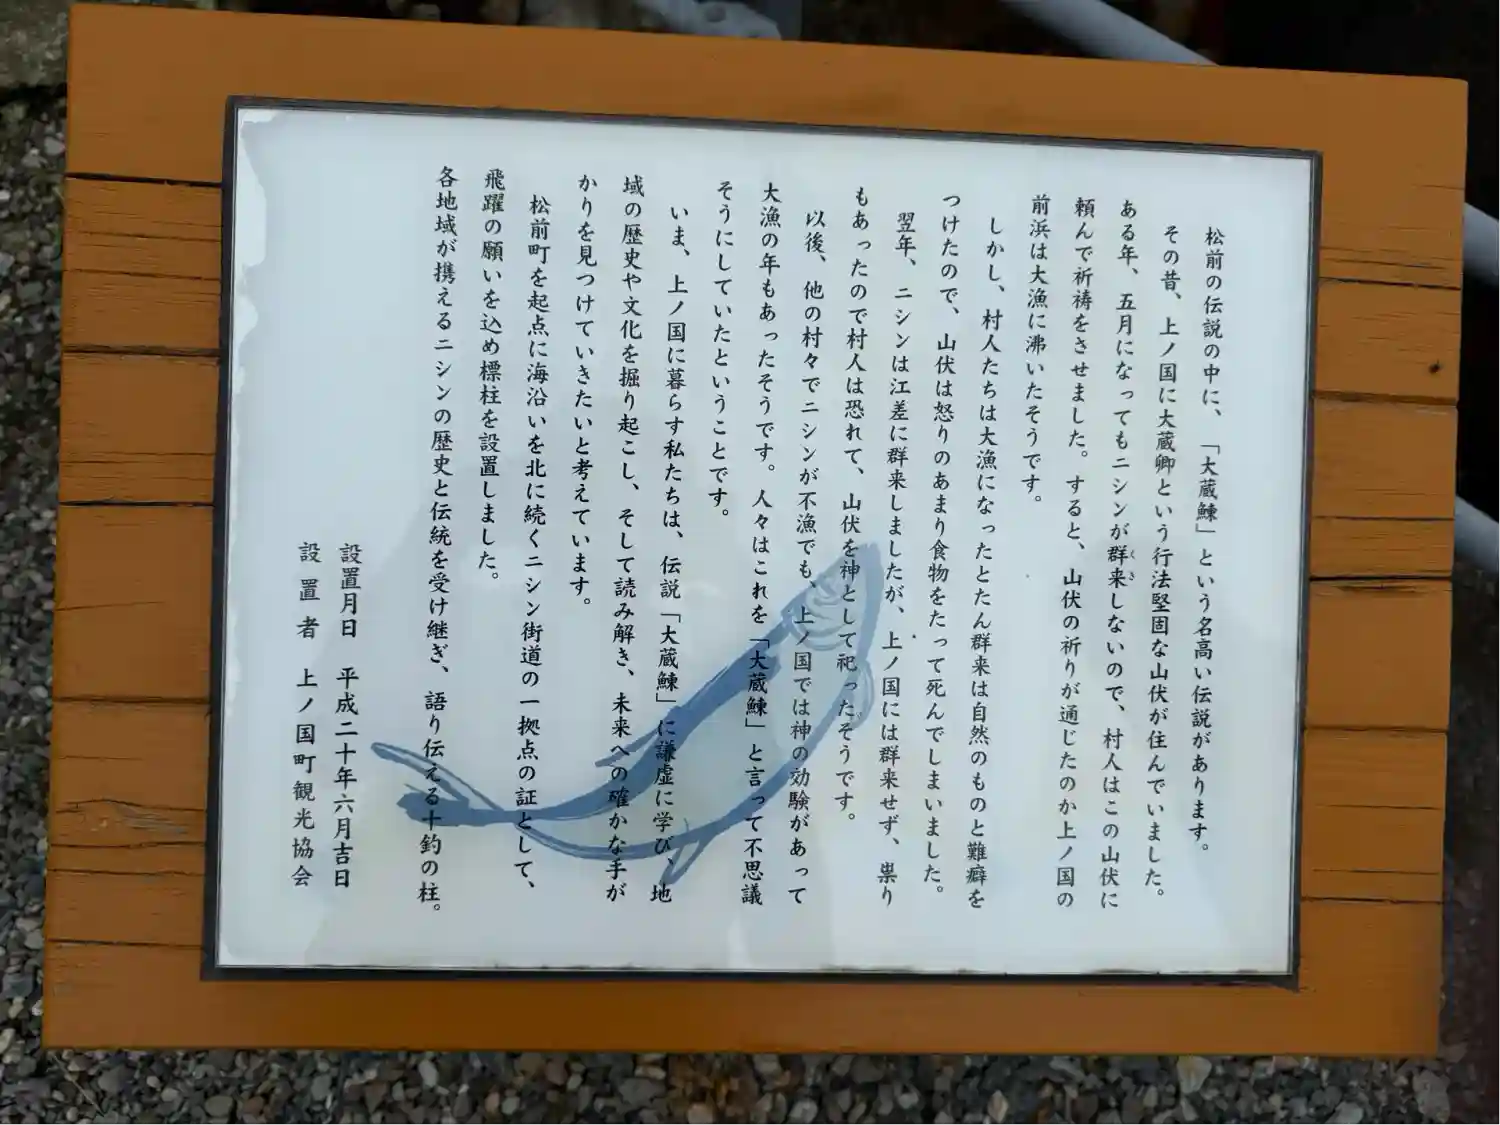 松前の伝説の中に、「大蔵鰊」という名高い伝説があります。
その昔、上ノ国に大蔵卿という行法堅固な山伏が住んでいました。
ある年、五月になってもニシンが群来しないので、村人はこの山伏に
頼んで祈祷をさせました。すると、山伏の祈りが通じたのか上ノ国の
前浜は大漁に沸いたそうです。
しかし、村人たちは大漁になったとたん群来は自然のものと難癖を
つけたので、山伏は怒りのあまり食物をたって死んでしまいました。
翌年、ニシンは江差に群来しましたが、上ノ国には群来せず、祟り
もあったので村人は恐れて、山伏を神として祀ったそうです。
以後、他の村々でニシンが不漁でも、上ノ国では神の効験があって
大漁の年もあったそうです。人々はこれを「大蔵鰊」と言って不思議
そうにしていたということです。
いま、上ノ国に暮らす私たちは、伝説「大蔵鰊」に謙虚に学び、地
域の歴史や文化を掘り起こし、そして読み解き、未来への確かな手が
かりを見つけていきたいと考えています。
松前町を起点に海沿いを北に続くニシン街道の一拠点の証として、
飛躍の願いを込め標柱を設置しました。
各地域が携えるニシンの歴史と伝統を受け継ぎ、語り伝える十釣の柱。
設置月日 平成二十年六月吉日
設置者 上ノ国町観光協会